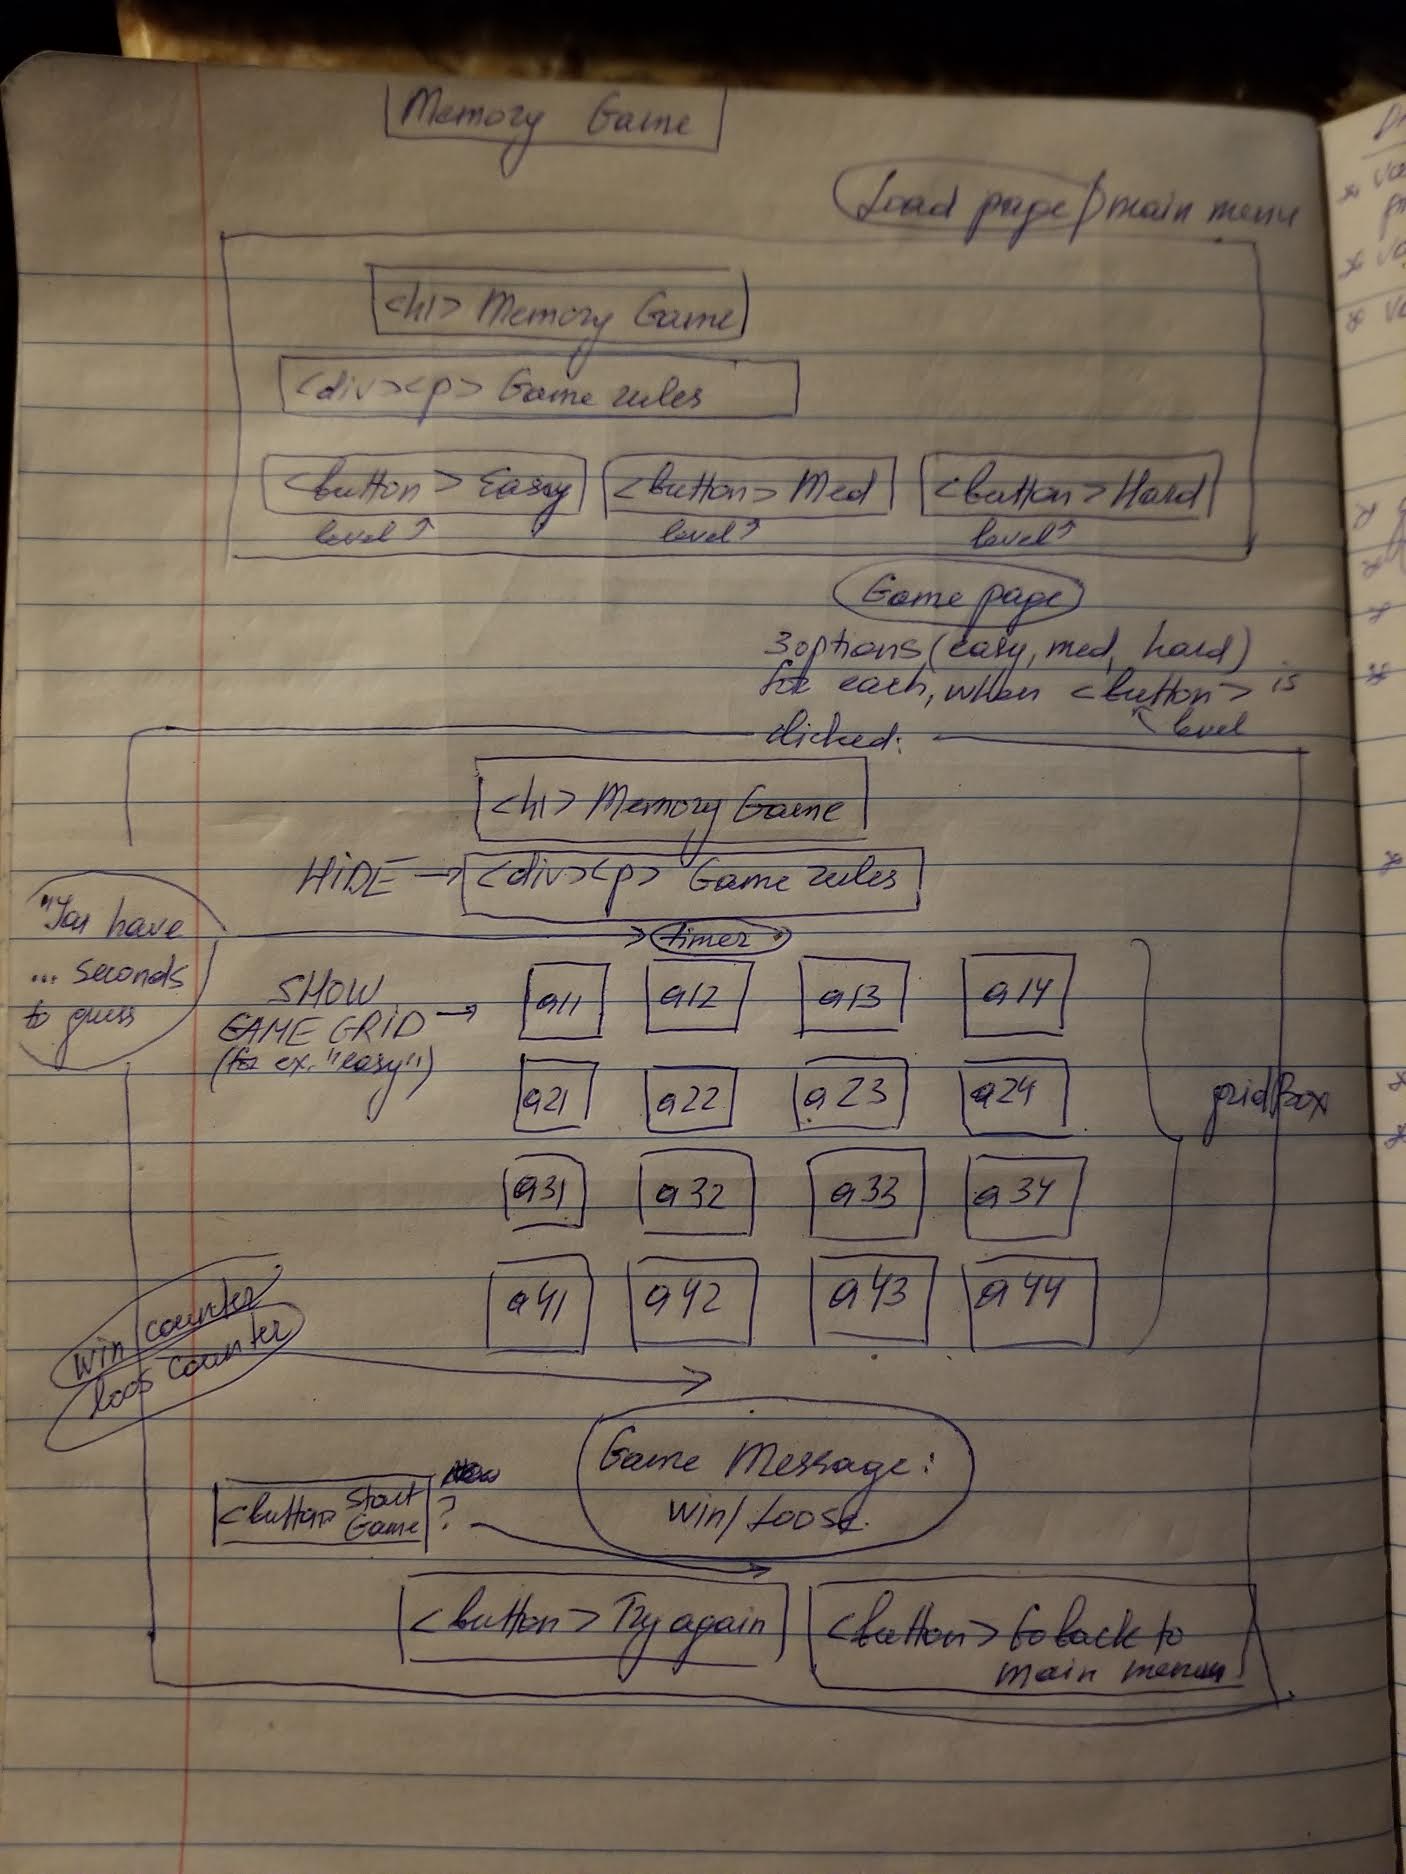 Memory Game
Load page/main menu
<h1> Memory Game
<div><p> Game rules
<button> Easy
<button> Med
<button> Hard
level
level
level
Game page
3options (easy, med, hard)
for each, when <button> is
level
clicked:
<h1> Memory Game
HIDE → <div><p> Game rules
"You have
... seconds
to guess
timer
SHOW
GAME GRID →
(for ex. "easy")
a11 a12 a13 a14
a21 a22 a23 a24
a31 a32 a33 a34
a41 a42 a43 a44
gridBox
win counter
loos counter
Game Message:
win/loose.
<button> Start
Game
?
<button> Try again
<button> Go back to
main menu